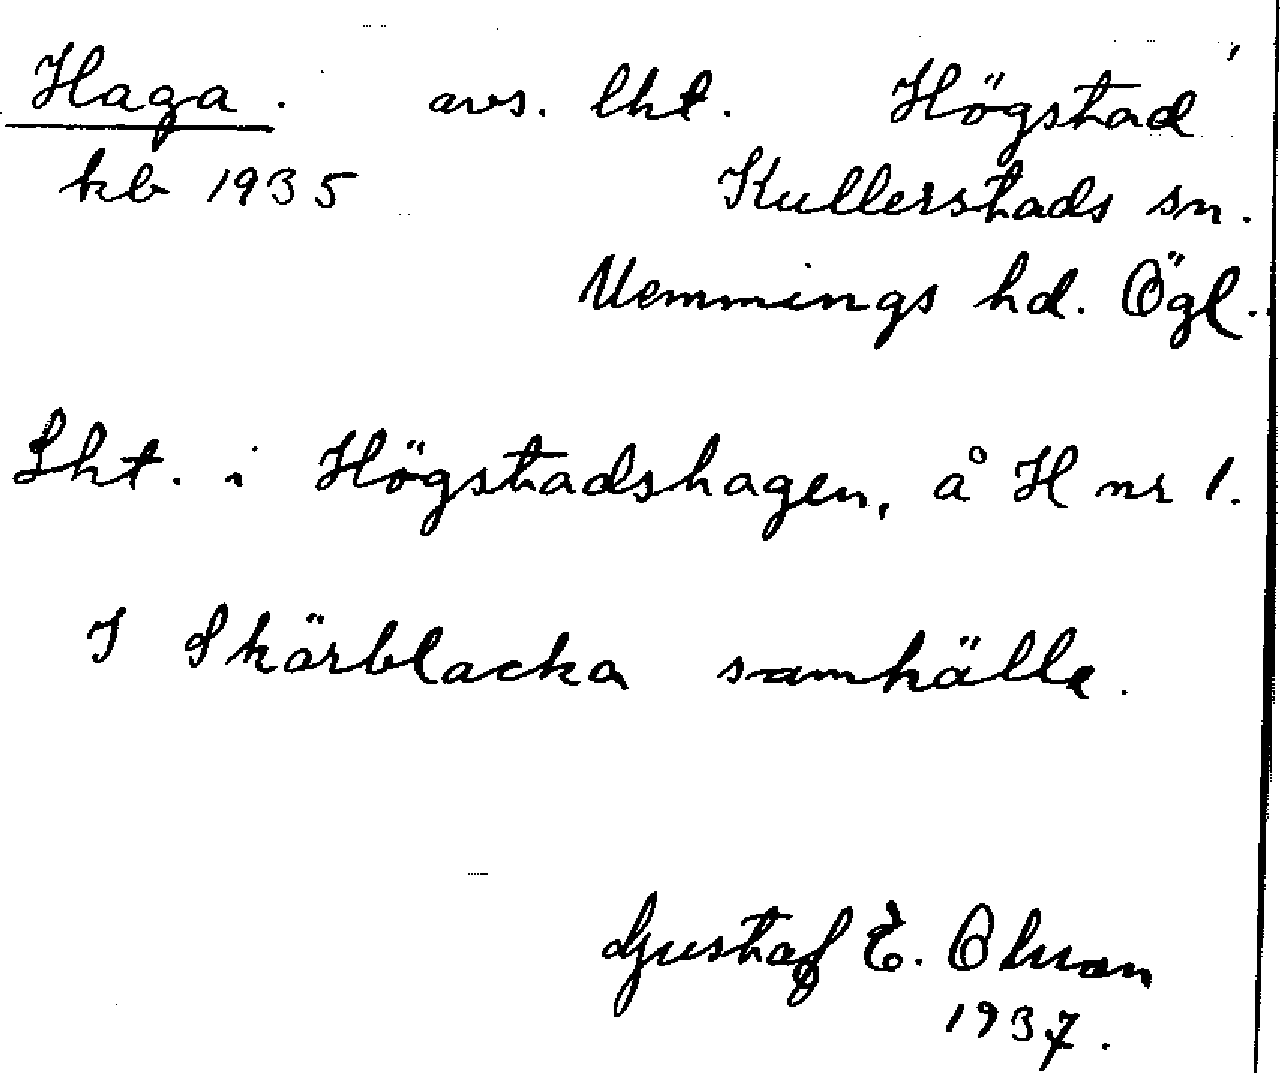 Haga. avs. lht. Högstad
kb 1935 Kullerstads sn.
Memmings hd. Ögl.
Lht. i Högstadshagen, å H nr 1.
I Skärblacka samhälle.
Gustaf E. Olsson
1937.